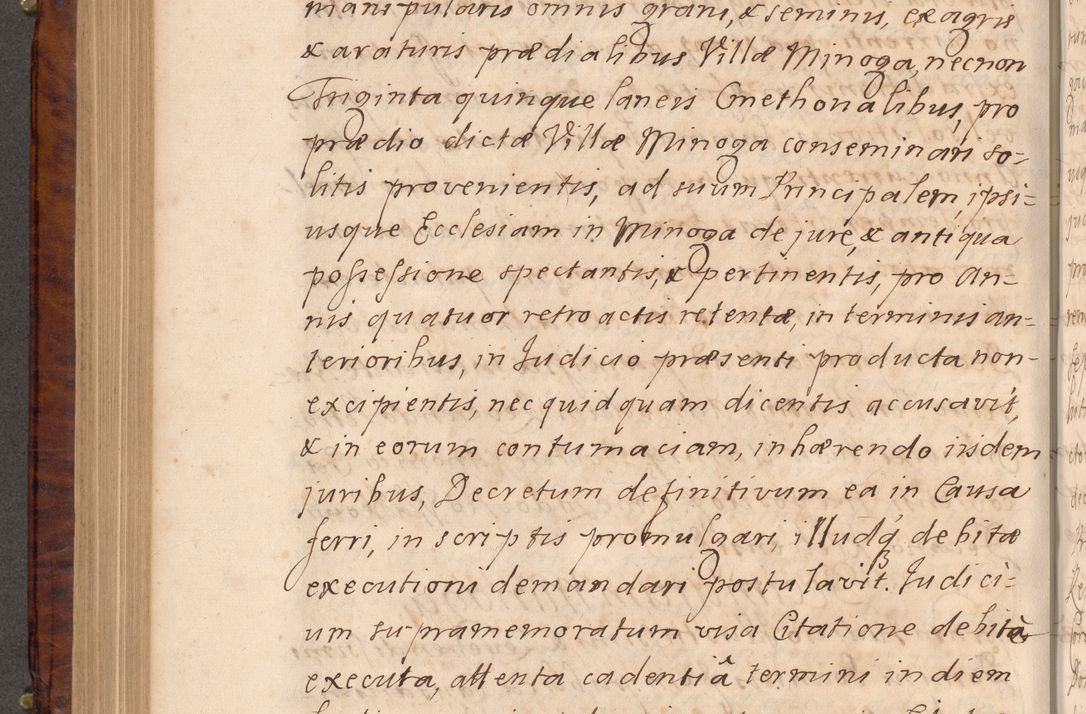 manipularis omnis grani, & seminis, ex agris
& araturis prædialibus Villæ Minoga, necnon
Triginta quinque laneis Cmethonalibus, pro
prædio dictæ Villæ Minoga conseminari so=
litis provenientis, ad suum Principalem, ipsi=
usque Ecclesiam in Minoga de jure, & antiqua
possessione spectantis, & pertinentis, pro An=
nis quatuor retroactis retentæ, in terminis an=
terioribus, in Judicio præsenti producta non=
excipientis, nec quidquam dicentis accusavit,
& in eorum contumaciam, inhærendo iisdem
juribus, Decretum definitivum ea in Causa
ferri, in scriptis promulgari, illudq́ debitæ
executioni demandari postulavit. Judici=
um supramemoratum visa Citatione debitè
executa, attenta cadentiâ termini in diem